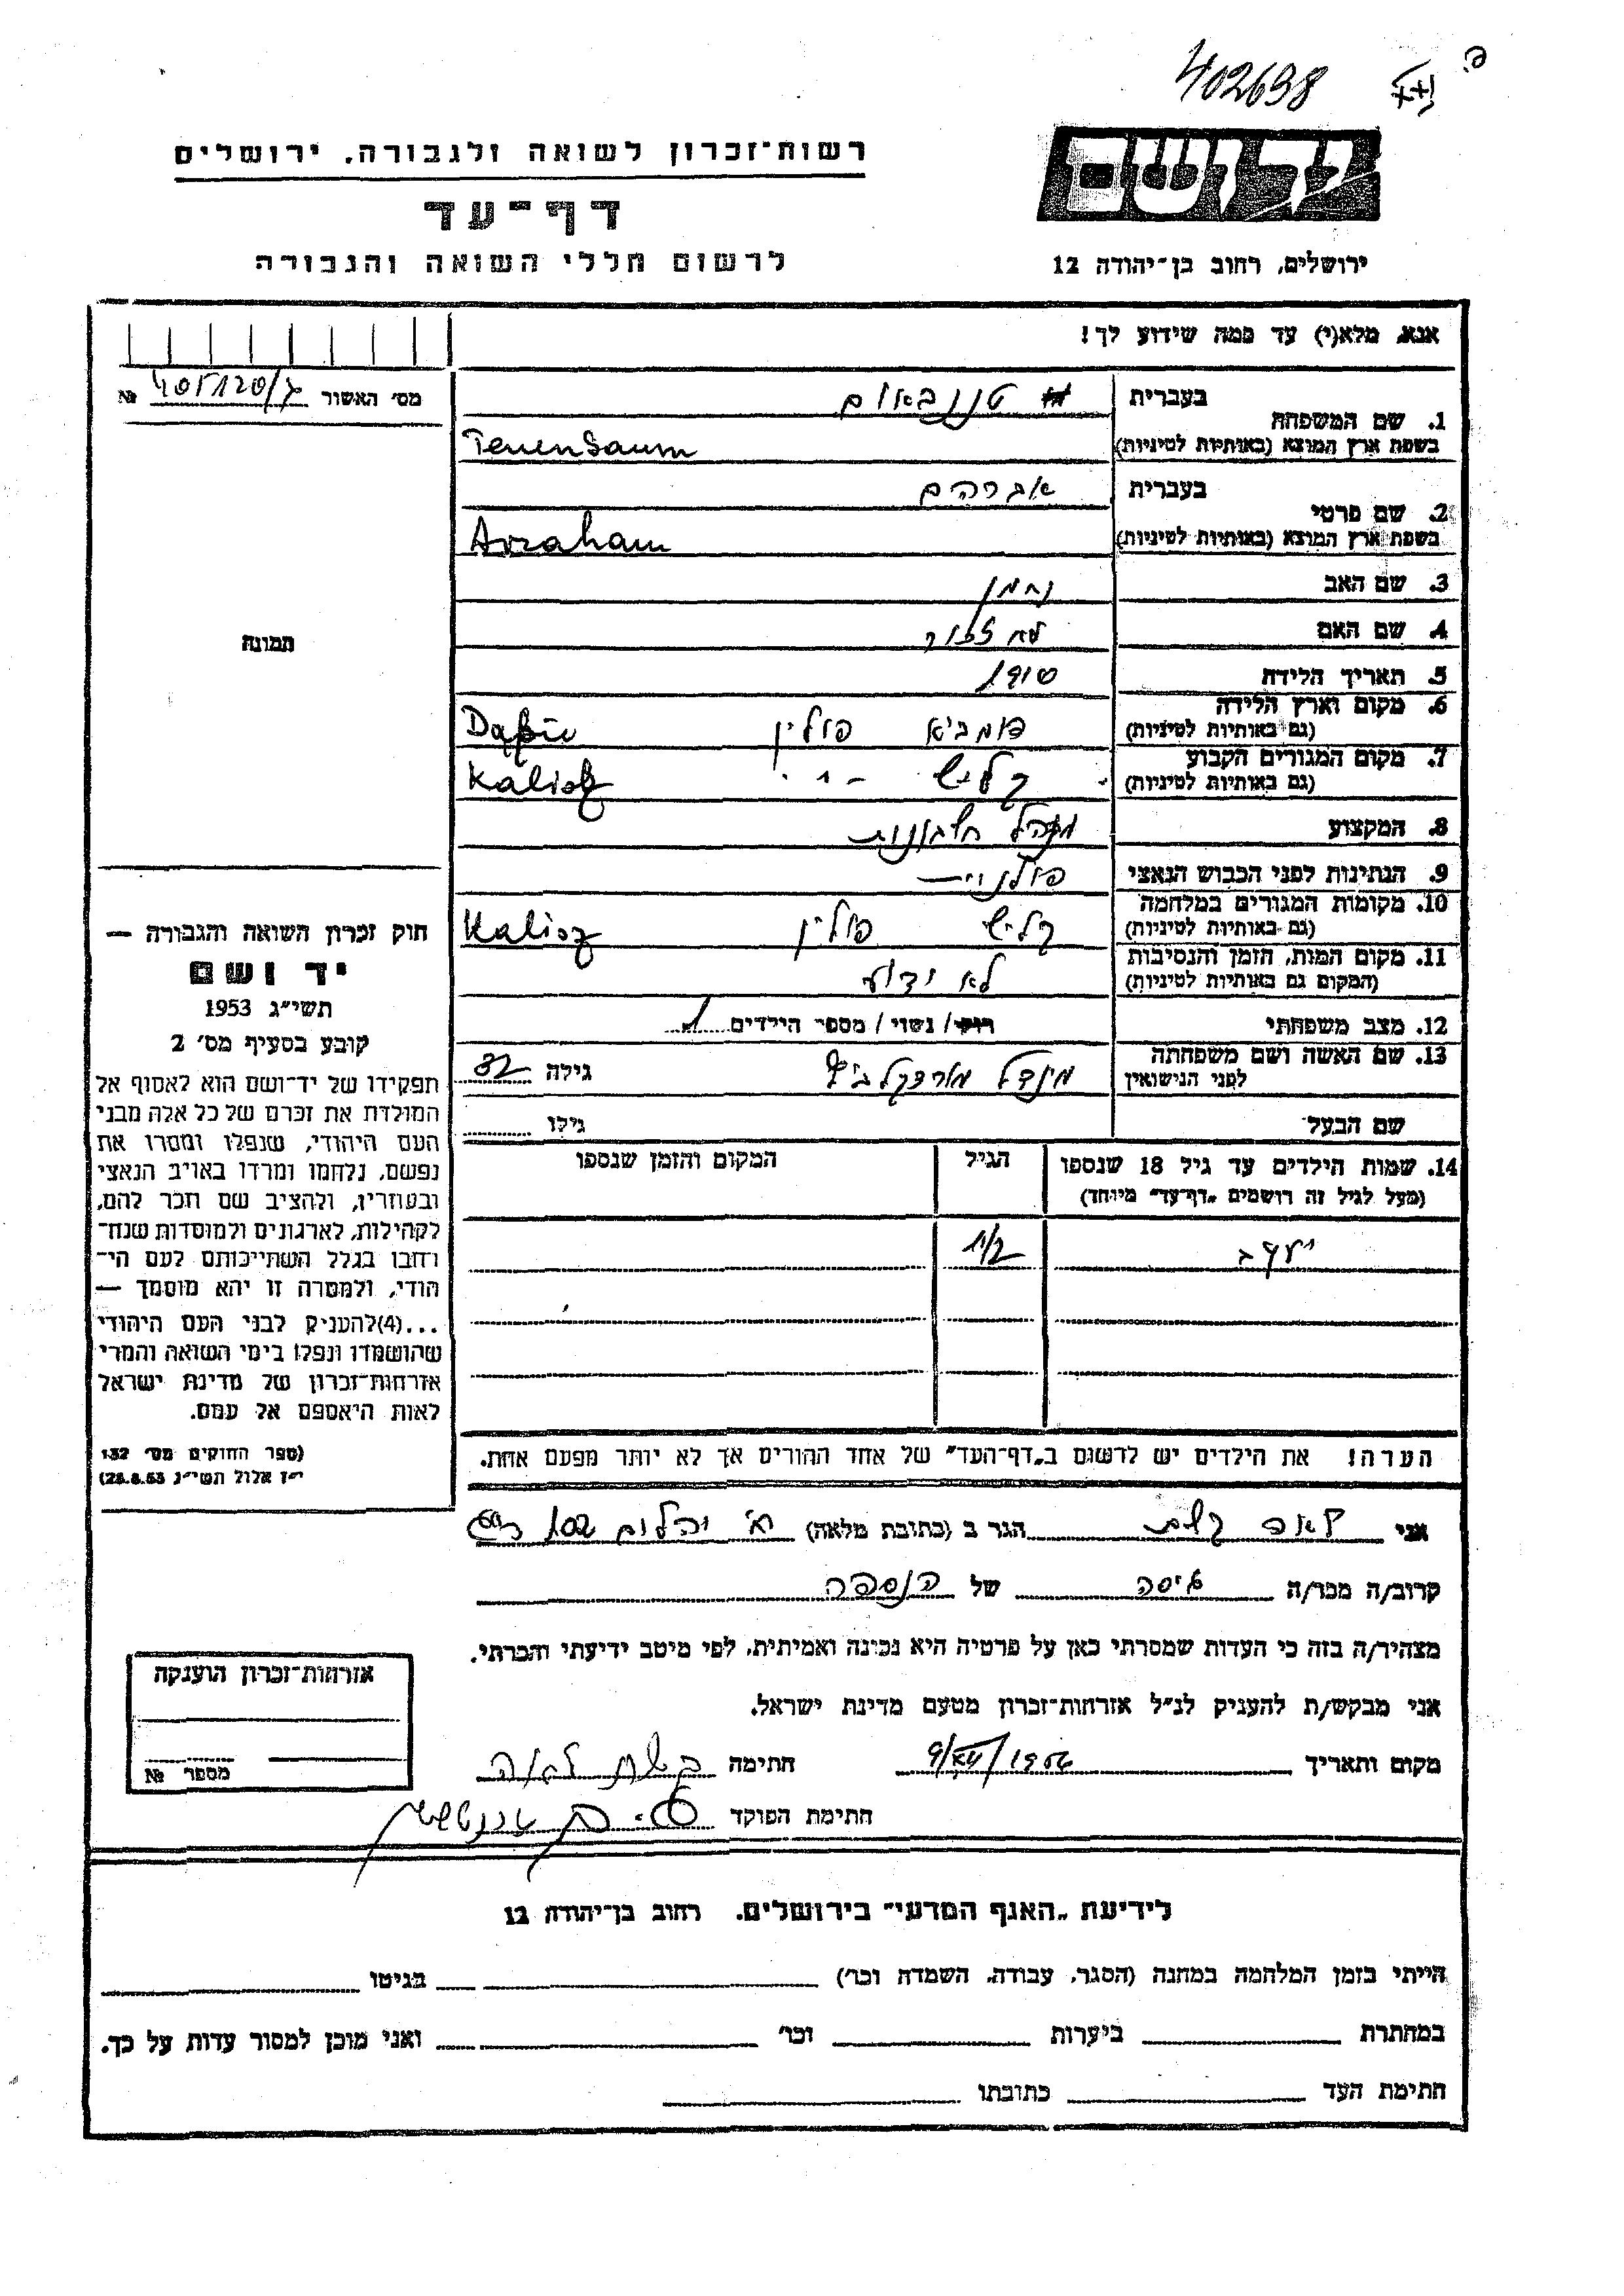 402698
יד ושם
רשות־זכרון לשואה ולגבורה, ירושלים
דף־עד
לרשום חללי השואה והגבורה
ירושלים, רחוב בן־יהודה 12
אנא, מלא(י) עד כמה שידוע לך!
מס׳ האשור № 405120/ג
1. שם המשפחה
בעברית טננבאום
בשפת ארץ המוצא (באותיות לטיניות) Tenenbaum
2. שם פרטי
בעברית אברהם
בשפת ארץ המוצא (באותיות לטיניות) Avraham
3. שם האב נחמן
4. שם האם לא זכור
5. תאריך הלידה
6. מקום וארץ הלידה
(גם באותיות לטיניות) דומביא פולין
7. מקום המגורים הקבוע
(גם באותיות לטיניות) קליש Kalisz
8. המקצוע מנהל חשבונות
9. הנתינות לפני הכבוש הנאצי פולנית
10. מקומות המגורים במלחמה
(גם באותיות לטיניות) קליש פולין Kalisz
11. מקום המות, הזמן והנסיבות
(המקום גם באותיות לטיניות) לא ידוע
12. מצב משפחתי רווק / נשוי / מספר הילדים 1
13. שם האשה ושם משפחתה
לפני הנישואין מינדל גילה 32
שם הבעל גילו
14. שמות הילדים עד גיל 18 שנספו הגיל המקום והזמן שנספו
(מעל לגיל זה רושמים „דף־עד״ מיוחד)
יעקב 1/2
הערה! את הילדים יש לרשום ב„דף־העד״ של אחד ההורים אך לא יותר מפעם אחת.
תמונה
חוק זכרון השואה והגבורה —
יד ושם
תשי״ג 1953
קובע בסעיף מס׳ 2
תפקידו של יד־ושם הוא לאסוף אל
המולדת את זכרם של כל אלה מבני
העם היהודי, שנפלו ומסרו את
נפשם, נלחמו ומרדו באויב הנאצי
ובעוזריו, ולהציב שם וזכר להם,
לקהילות, לארגונים ולמוסדות שנח־
רחבו בגלל השתייכותם לעם הי־
הודי, ולמטרה זו יהא מוסמך —
...(4)להעניק לבני העם היהודי
שהושמדו ונפלו בימי השואה והמרי
אזרחות־זכרון של מדינת ישראל
לאות היאספם אל עמם.
(ספר החוקים מס׳ 132
י״ז אלול תשי״ג 28.8.53)
אני לאה קשת הגר ב (כתובת מלאה) יהלום 102
קרוב/ה מכר/ה גיסה של הנספה
מצהיר/ה בזה כי העדות שמסרתי כאן על פרטיה היא נכונה ואמיתית, לפי מיטב ידיעתי והכרתי.
אני מבקש/ת להעניק לנ״ל אזרחות־זכרון מטעם מדינת ישראל.
מקום ותאריך 9/XII/1956 חתימה קשת לאה
חתימת הפוקד
אזרחות־זכרון הוענקה
מספר №
לידיעת „האגף המדעי״ בירושלים, רחוב בן־יהודה 12
הייתי בזמן המלחמה במחנה (הסגר, עבודה, השמדה וכו׳) בגיטו
במחתרת ביערות וכו׳ ואני מוכן למסור עדות על כך.
חתימת העד כתובתו